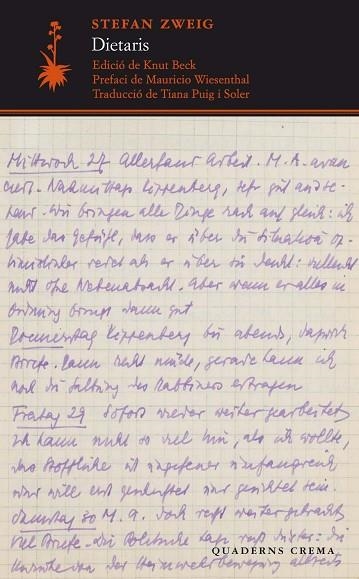 STEFAN ZWEIG
Dietaris
Edició de Knut Beck
Prefaci de Mauricio Wiesenthal
Traducció de Tiana Puig i Soler
Mittwoch 27 Allerhand Arbeit. M. A.
Nachmittags Kippenberg, sehr gut
Wir bringen alle Dinge rasch auf gleich: ich
habe das Gefühl, dass er über die Situation op-
timistischer redet als er über sie denkt: vielleicht
nicht ohne Nebenabsicht. Aber wenn er alles in
Ordnung bringt dann gut
Donnerstag Kippenberg bis abends, dazwischen
Briefe. Dann recht müde, gerade kann ich
noch die Salbung des Rabbiners ertragen
Freitag 29 Sofort wieder weitergearbeitet
Ich kann nicht so viel hin, als ich wollte,
das Stoffliche ist ungeheuer umfangreich
und will erst gesichtet sein.
Samstag 30 M. A. doch weitergebracht
Viel Briefe. Die Politische Lage die
der Heimwehrbewegung
QUADERNS CREMA